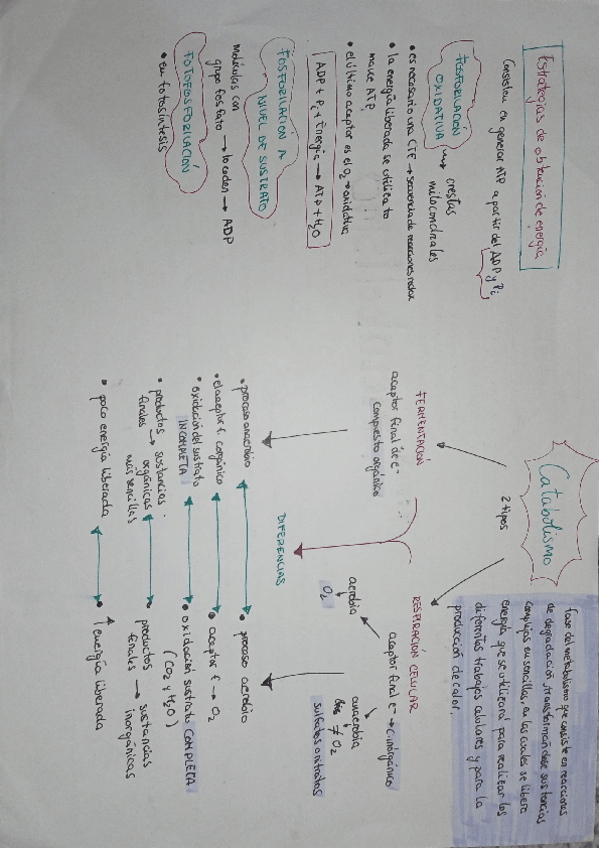 Catabolismo
fase del metabolismo que consiste en reacciones
de degradación, transformándose sustancias
complejas en sencillas, en las cuales se libera
energía que se utilizará para realizar los
diferentes trabajos celulares y para la
producción de calor.
2 tipos
FERMENTACIÓN
aceptor final de e-
compuesto orgánico
RESPIRACIÓN CELULAR
aceptor final e- → C.inorgánico
aerobia
O2
anaerobia
≠ O2
sulfatos o nitratos
DIFERENCIAS
• proceso anaerobio
• el aceptor f. corgánico
• oxidación del sustrato
INCOMPLETA
• productos → sustancias
finales orgánicas
más sencillas
• poca energía liberada
• proceso aerobio
• aceptor f → O2
• oxidación sustrato COMPLETA
(CO2 y H2O)
• productos
finales → sustancias
inorgánicas
• ↑ energía liberada
Estrategias de obtención de energía
Consisten en generar ATP a partir del ADP y Pi
FOSFORILACIÓN
OXIDATIVA
crestas
mitocondriales
• es necesario una CTE → secuencia de reacciones redox
• la energía liberada se utiliza to
make ATP
• el último aceptor es el O2 → oxidativa
ADP + Pi + Energía → ATP + H2O
FOSFORILACIÓN A
NIVEL DE SUSTRATO
Moléculas con
grupo fosfato → lo ceden → ADP
FOTOFOSFORILACIÓN
• en fotosíntesis